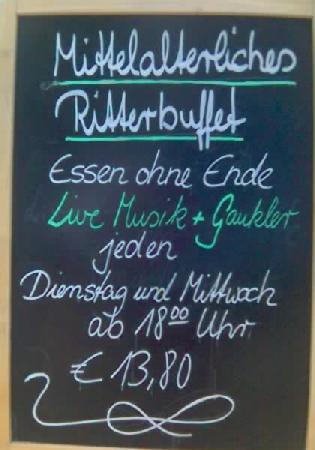 Mittelalterliches
Ritterbuffet
Essen ohne Ende
Live Musik + Gaukler
jeden
Dienstag und Mittwoch
ab 18⁰⁰ Uhr
€ 13,80